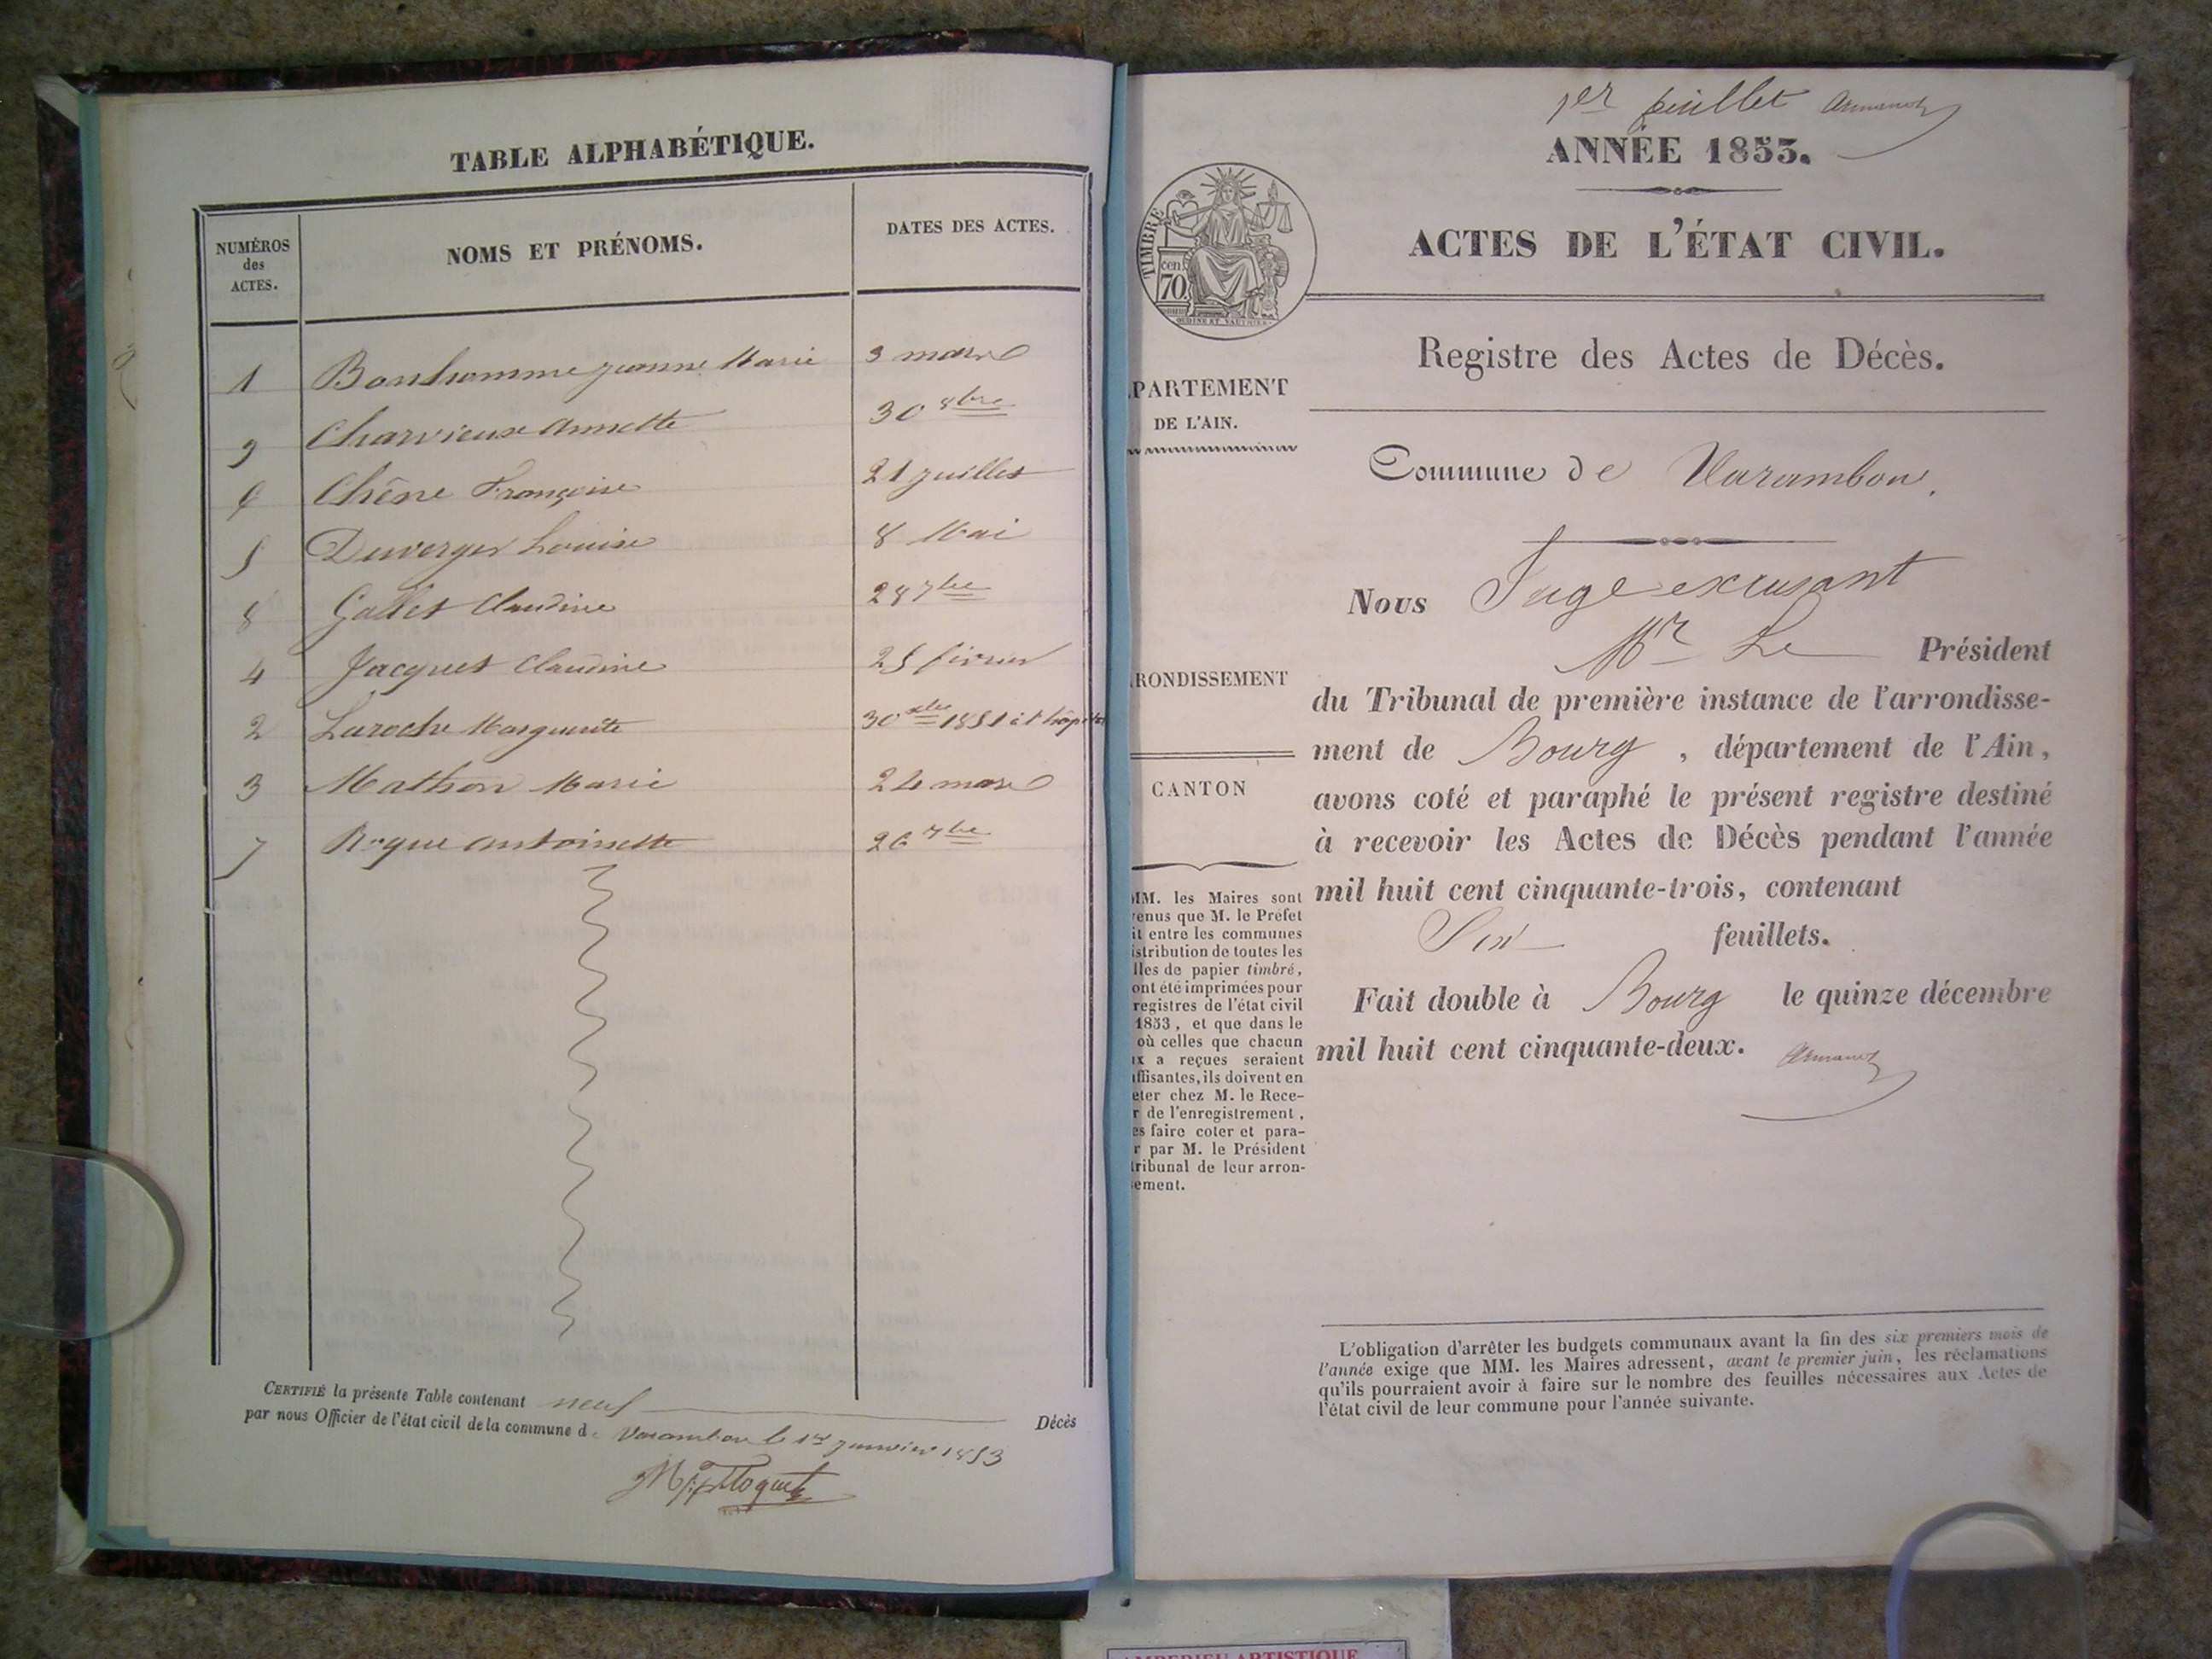 TABLE ALPHABÉTIQUE.
NUMÉROS
des
ACTES.
NOMS ET PRÉNOMS.
DATES DES ACTES.
1 Bonhomme jeanne Marie 3 mars
9 Charvieux annette 30 8bre
6 Chêne Françoise 21 juillet
5 Duverger Louise 8 Mai
8 Gallet Claudine 28 7bre
4 Jacquet Claudine 25 février
2 Laroche Marguerite 30 1851
3 Mathon Marie 24 mars
7 antoinette 26 7bre
CERTIFIÉ la présente Table contenant neuf Décès
par nous Officier de l'état civil de la commune d Varambon le 1er janvier 1853
1er feuillet
ANNÉE 1853.
TIMBRE
70 cen
ACTES DE L'ÉTAT CIVIL.
Registre des Actes de Décès.
PARTEMENT
DE L'AIN.
Commune de Varambon.
Nous Juge excusant
Mr Le Président
RONDISSEMENT
du Tribunal de première instance de l'arrondisse-
ment de Bourg, département de l'Ain,
CANTON
avons coté et paraphé le présent registre destiné
à recevoir les Actes de Décès pendant l'année
mil huit cent cinquante-trois, contenant
Six feuillets.
Fait double à Bourg le quinze décembre
mil huit cent cinquante-deux.
MM. les Maires sont
enus que M. le Préfet
it entre les communes
istribution de toutes les
lles de papier timbré,
ont été imprimées pour
registres de l'état civil
1853, et que dans le
où celles que chacun
x a reçues seraient
ffisantes, ils doivent en
eter chez M. le Rece-
r de l'enregistrement,
es faire coter et para-
r par M. le Président
tribunal de leur arron-
ement.
L'obligation d'arrêter les budgets communaux avant la fin des six premiers mois de
l'année exige que MM. les Maires adressent, avant le premier juin, les réclamations
qu'ils pourraient avoir à faire sur le nombre des feuilles nécessaires aux Actes de
l'état civil de leur commune pour l'année suivante.
AMBERIEU ARTISTIQUE